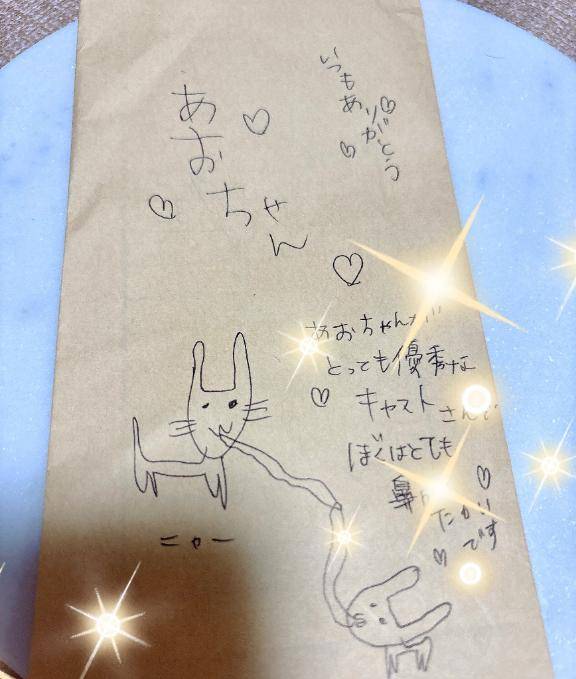 いつもありがとう
あおちゃん
あおちゃんが
とっても優秀な
キャストさんで
ぼくはとても
鼻が
たかい
です
ニャー